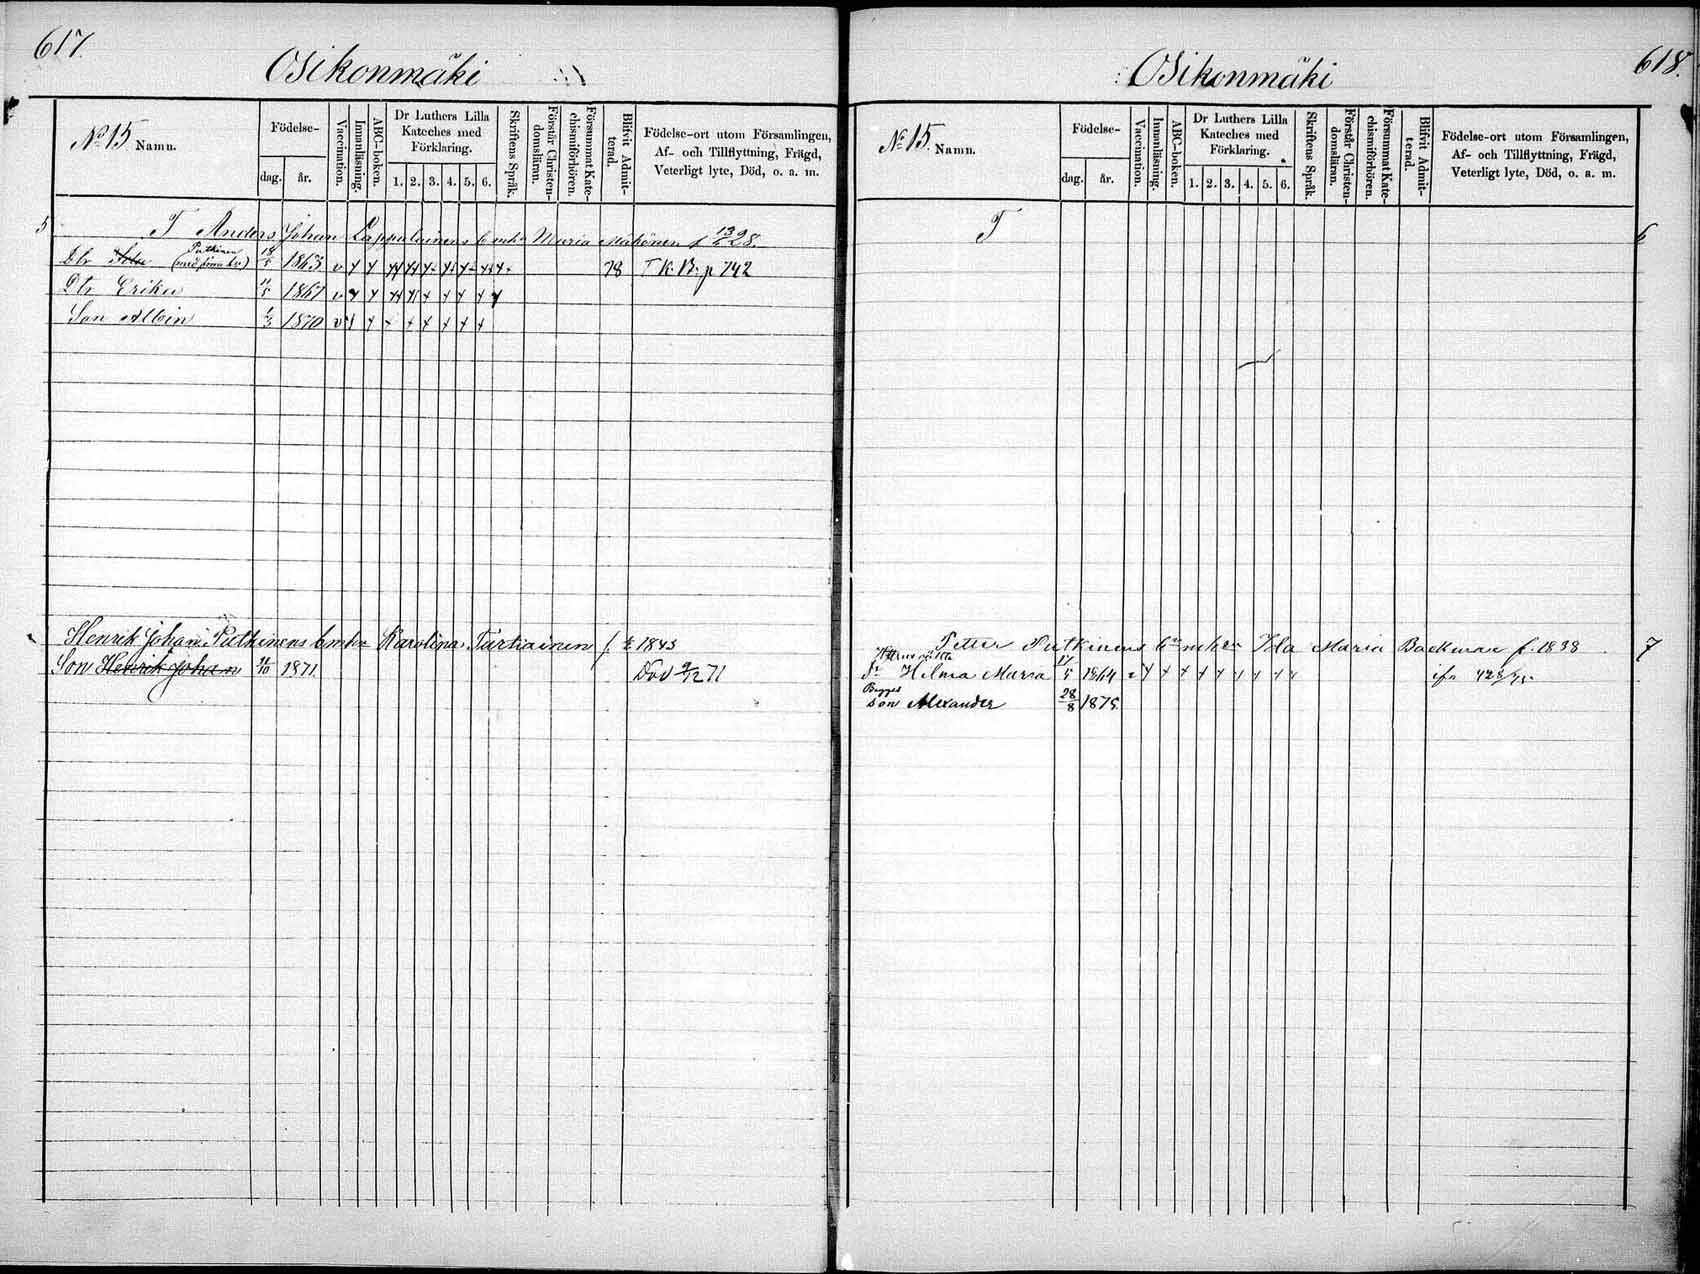 617.
Osikonmäki
No 15. Namn.
Födelse-
dag. år.
Vaccination.
Innanläsning.
ABC-boken.
Dr Luthers Lilla Kateches med Förklaring.
1. 2. 3. 4. 5. 6.
Skriftens Språk.
Förstår Christendomsläran.
Försummat Katechismiförhören.
Blifvit Admitterad.
Födelse-ort utom Församlingen,
Af- och Tillflyttning, Frägd,
Veterligt lyte, Död, o. a. m.
5
T Anders Johan Lappalainens Enka Maria Makkonen f 13/9 28.
Putkinen
Dtr 18/5 1863 v 78 T K. B. p 742
Dtr Erika 1867 v
Son Albin 1870 v
Henrik Johan Putkinens Enka Karolina Turtiainen f. 1843
Son Henrik Johan 1871 Död 9/12 71
618.
Osikonmäki
No 15. Namn.
Födelse-
dag. år.
Vaccination.
Innanläsning.
ABC-boken.
Dr Luthers Lilla Kateches med Förklaring.
1. 2. 3. 4. 5. 6.
Skriftens Språk.
Förstår Christendomsläran.
Försummat Katechismiförhören.
Blifvit Admitterad.
Födelse-ort utom Församlingen,
Af- och Tillflyttning, Frägd,
Veterligt lyte, Död, o. a. m.
T
6
Petter Putkinens Maria Backman f. 1838
7
Hilma Maria 1864
Begges
Son Alexander 28/8 1875